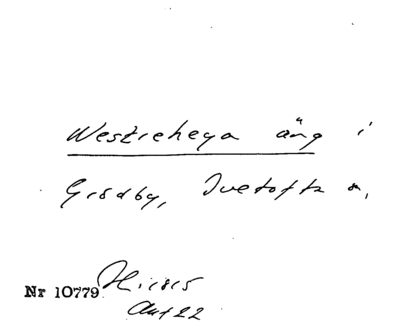 Westrehega äng i
Grödby, Ivetofta s,
Nr 10779 H. 1815
Akt 22